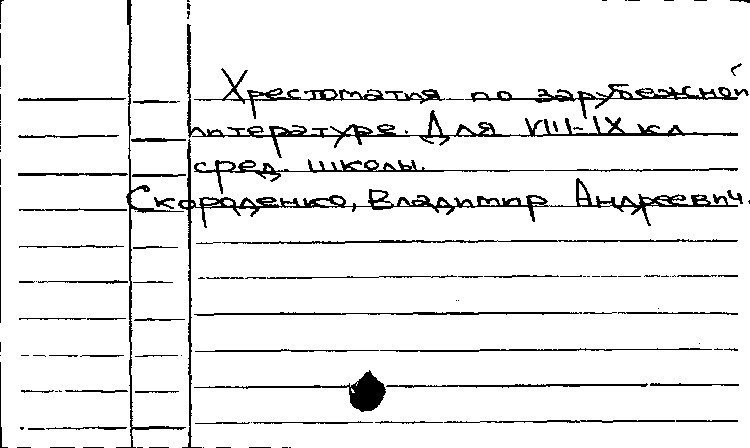 Хрестоматия по зарубежной
литературе. Для VIII-IX кл
сред. школы.
Скороденко, Владимир Андреевич.